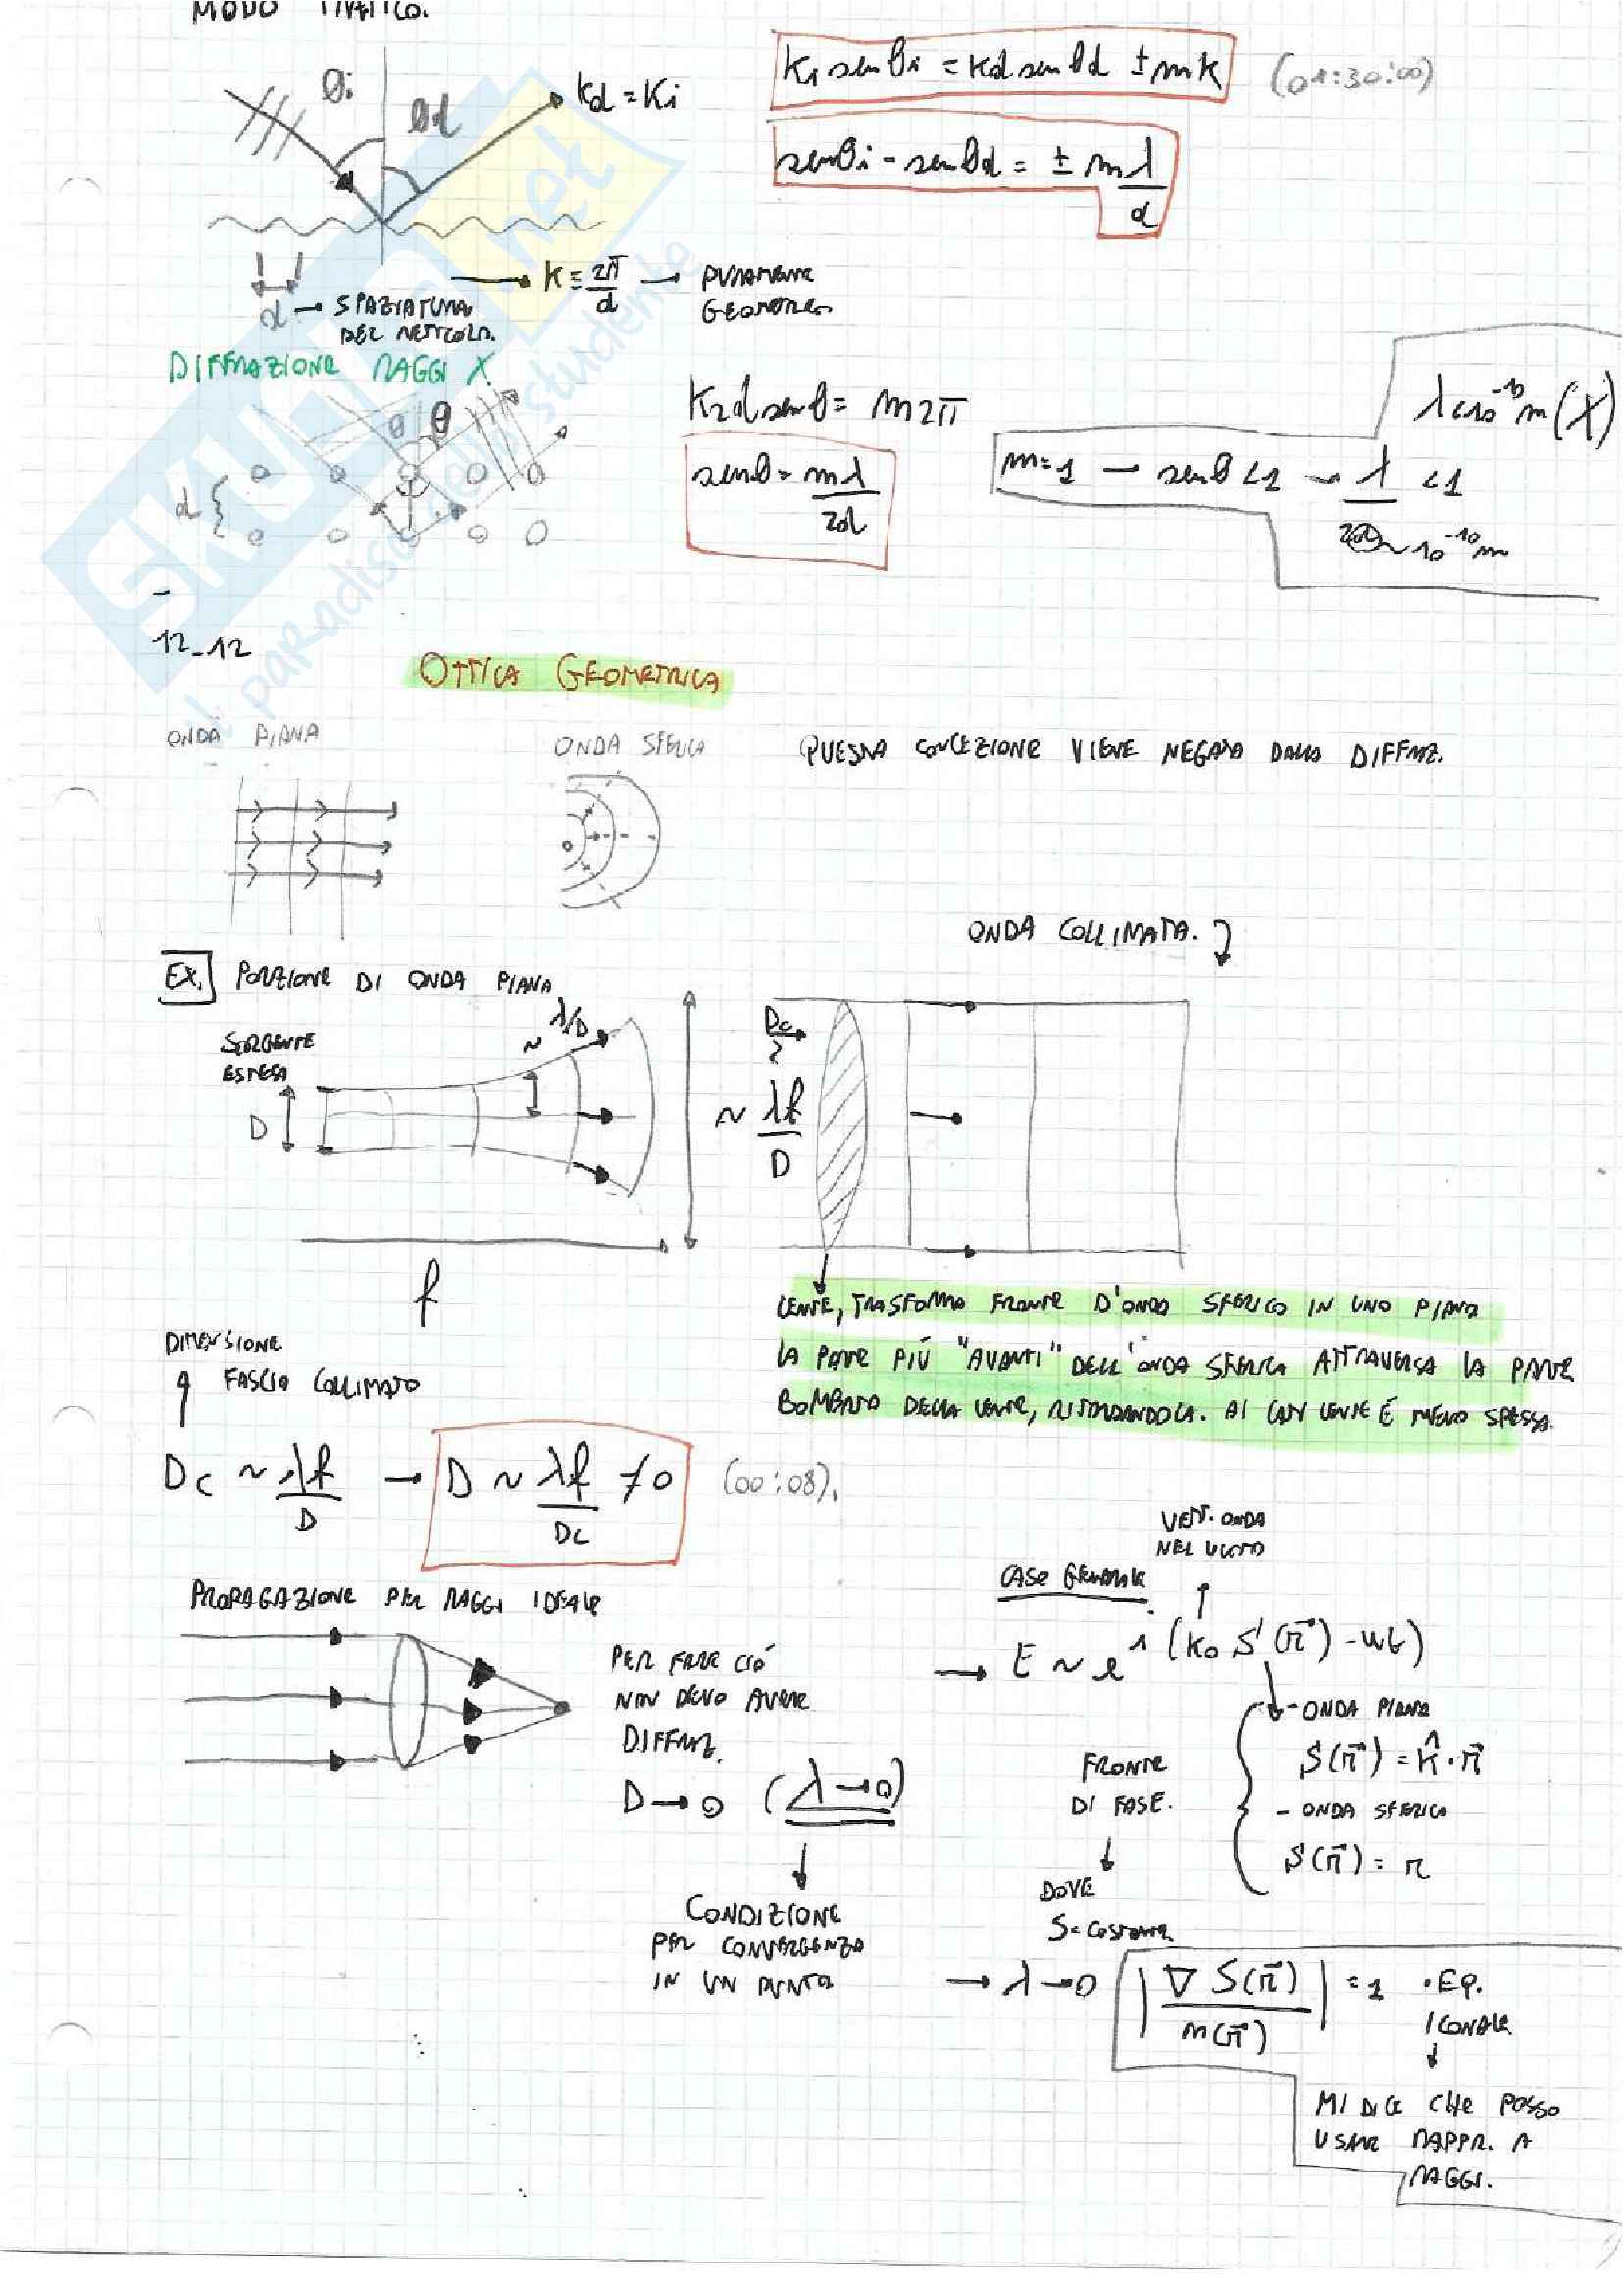 MODO
θi
θd
kd = Ki
Ki senθi = Kd senθd ± mk
(01:30:00)
senθi - senθd = ± mλ/d
d → SPAZIATURA DEL RETICOLO.
K = 2π/d → PURAMENTE GEOMETRICO
DIFFRAZIONE RAGGI X
θ θ
d
K2d senθ = m2π
senθ = mλ/2d
m=1 → senθ <1 → λ/2d <1
λ<10^-10 m (X)
~10^-10 m
12_12
OTTICA GEOMETRICA
ONDA PIANA
ONDA SFERICA
QUESTA CONCEZIONE VIENE NEGATA DALLA DIFFRAZ.
ONDA COLLIMATA.
EX. PORZIONE DI ONDA PIANA
SORGENTE
ESTESA
D
~ λ/D
Dc
~
~ λf/D
f
LENTE, TRASFORMA FRONTE D'ONDA SFERICO IN UNO PIANO
LA PARTE PIÙ "AVANTI" DELL'ONDA SFERICA ATTRAVERSA LA PARTE
BOMBATA DELLA LENTE, RITARDANDOLA. AI LATI LENTE È MENO SPESSA.
DIMENSIONE
FASCIO COLLIMATO
Dc ~ λf/D → D ~ λf/Dc ≠0
(00:08).
PROPAGAZIONE PER RAGGI IDEALE
PER FARE CIÒ
NON DEVO AVERE
DIFFRAZ.
D→0 (λ→0)
CONDIZIONE
PER CONVERGENZA
IN UN PUNTO
VETT. ONDA
NEL VUOTO
CASO GENERALE
→ E ~ e^i(k0 S(r⃗) - ωt)
- ONDA PIANA
S(r⃗) = k̂·r⃗
- ONDA SFERICA
S(r⃗) = r
FRONTE
DI FASE.
DOVE
S=COSTANTE
→ λ→0 |∇S(r⃗)/n(r⃗)| = 1 · EQ.
ICONALE
MI DICE CHE POSSO
USARE RAPPR. A
RAGGI.
SKUOLA.net
il paradiso dello studente